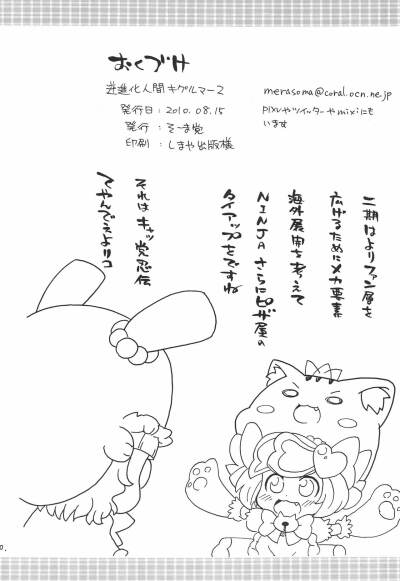 おくづけ
逆進化人間キグルマーZ
発行日：2010.08.15
発行：そーま党
印刷：しまや出版様
merasoma@coral.ocn.ne.jp
pixivやツイッターやmixiにも
います
二期はよりファン層を
広げるためにメカ要素
海外展開を考えて
NINJAさらにピザ屋の
タイアップをですね
それはキャッ党忍伝
てやんでえよりコ
0.